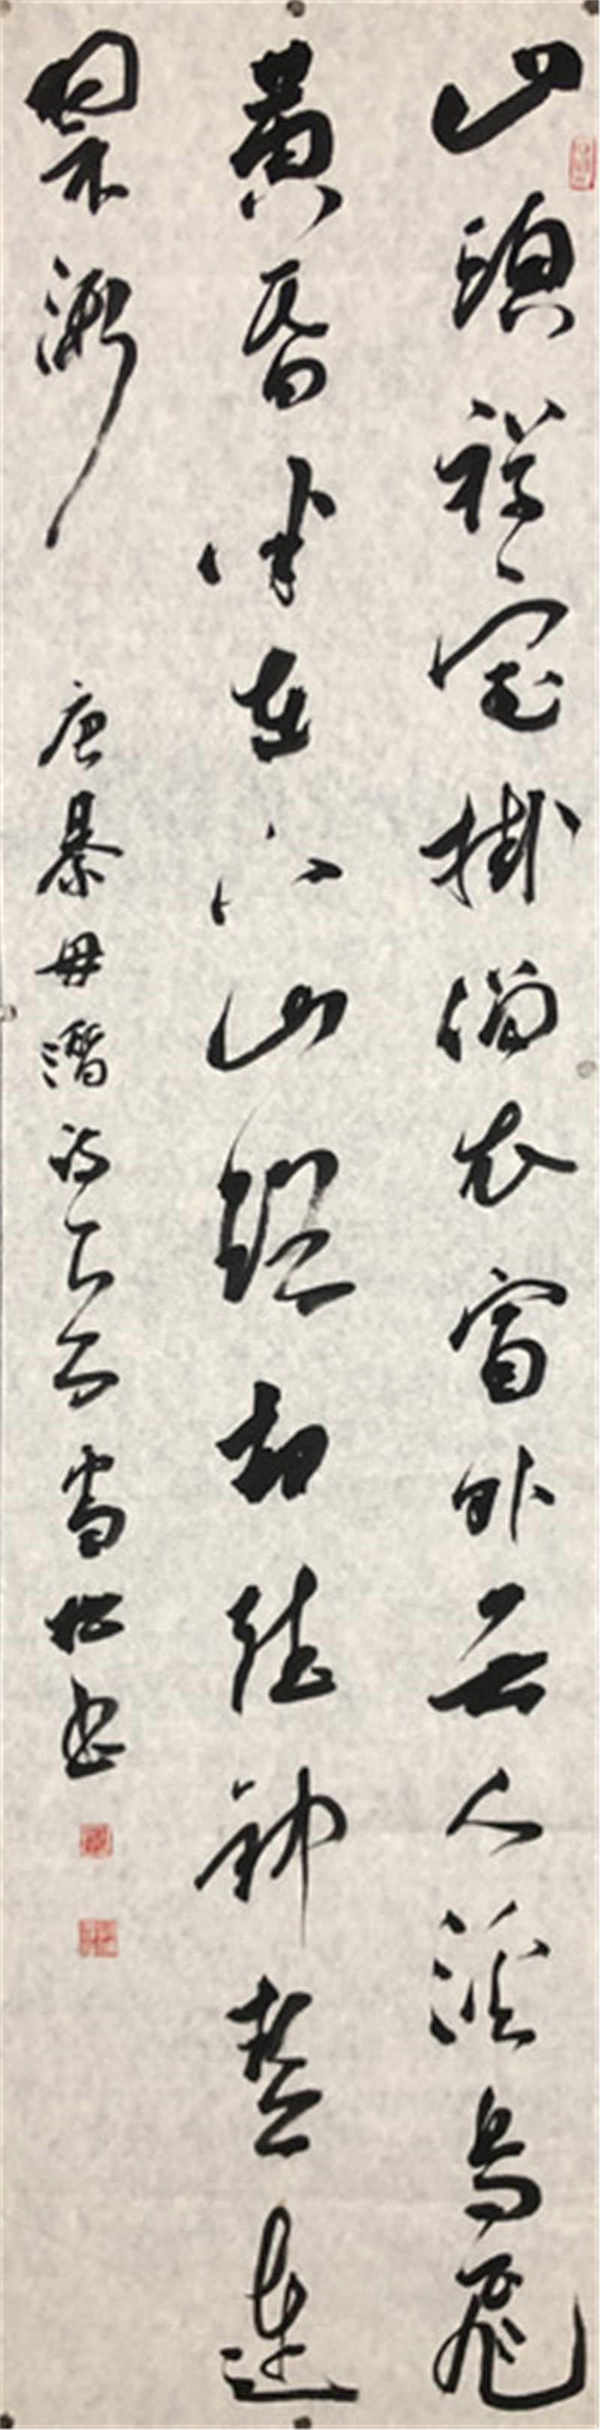 山頭禪室掛僧衣窗外無人溪鳥飛
黃昏半在下山路却聽鐘聲連
翠微
唐綦毋潛詩一首 雪松書